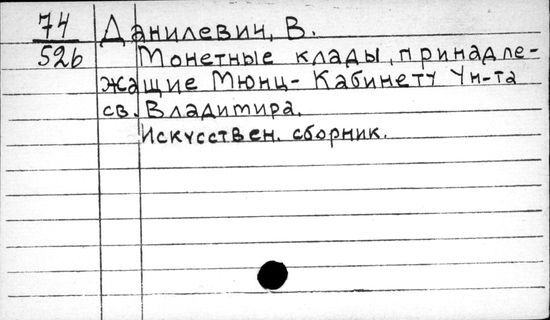 74 Данилевич, В.
526 Монетные клады, принадле-
жащие Мюнц-Кабинету Ун-та
св. Владимира.
Искусствен. сборник.